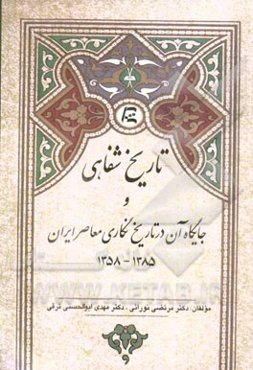 تاریخ شفاهی
و
جایگاه آن در تاریخ نگاری معاصر ایران
۱۳۵۸ - ۱۳۸۵
مؤلفان: دکتر مرتضی نورائی، دکتر مهدی ابوالحسنی ترقی